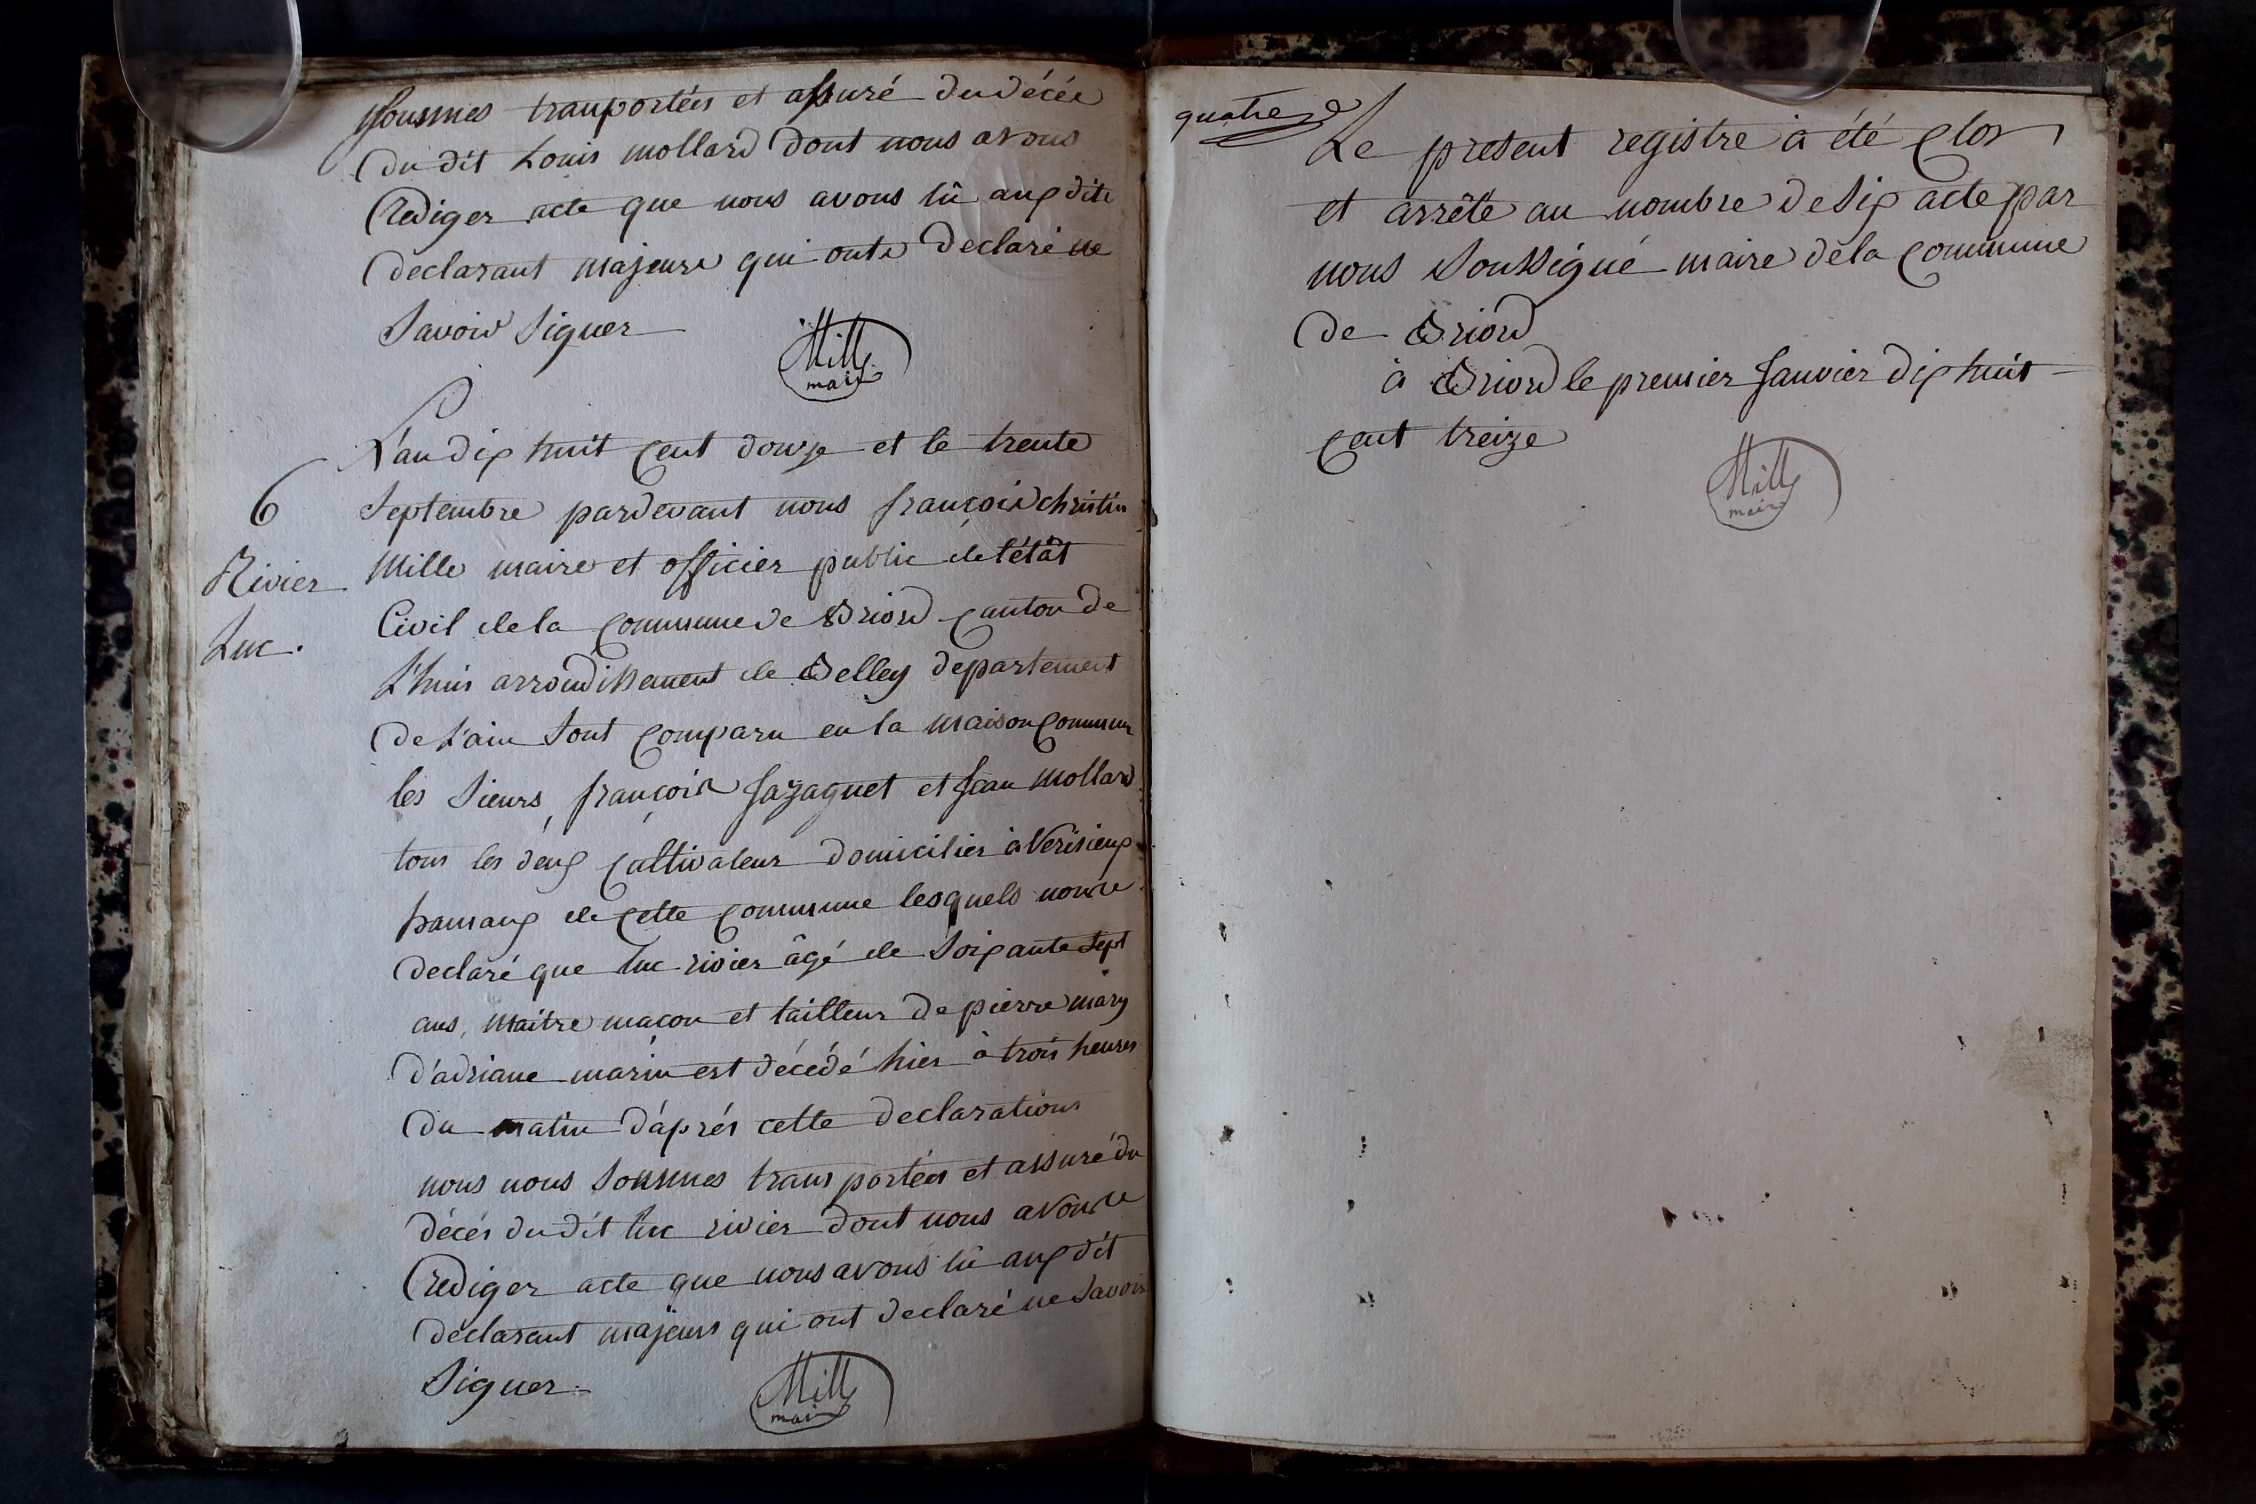 sommes transportées et assuré du décée
du dit Louis mollard dont nous avons
Rediger acte que nous avons lû aux dite
declarant majeure qui onte declaré ne
Savoir Signer
Mille
maire
L'an dix huit cent douze et le trente
6
Septembre pardevant nous françois christin
Rivier
Mille maire et officier public de l'état
Luc.
Civil de la commune de Briord canton de
L'huis arrondissement de Belley departement
de L'ain Sont comparu en la maison commune
les Sieurs françois Jazaguet et Jean Mollard
tous les deux cultivateur domicilier à Verisieux
hamaux de cette commune lesquels nous
declaré que Luc rivier âgé de Soixante Sept
ans, Maitre maçon et tailleur de pierre mary
d'adriane marin est décédé hier à trois heures
du matin d'áprés cette declarations
nous nous Sommes trans portées et assuré du
décés du dit Luc rivier dont nous avons
Rediger acte que nous avons lû aux dit
declarant majeurs qui ont declaré ne Savoir
Signer.
Mille
maire
quatre
Le present registre à été clos
et arrêté au nombre de Six acte par
nous Soussigné maire de la commune
de Briord
à Briord le premier Janvier dix huit
cent treize
Mille
maire